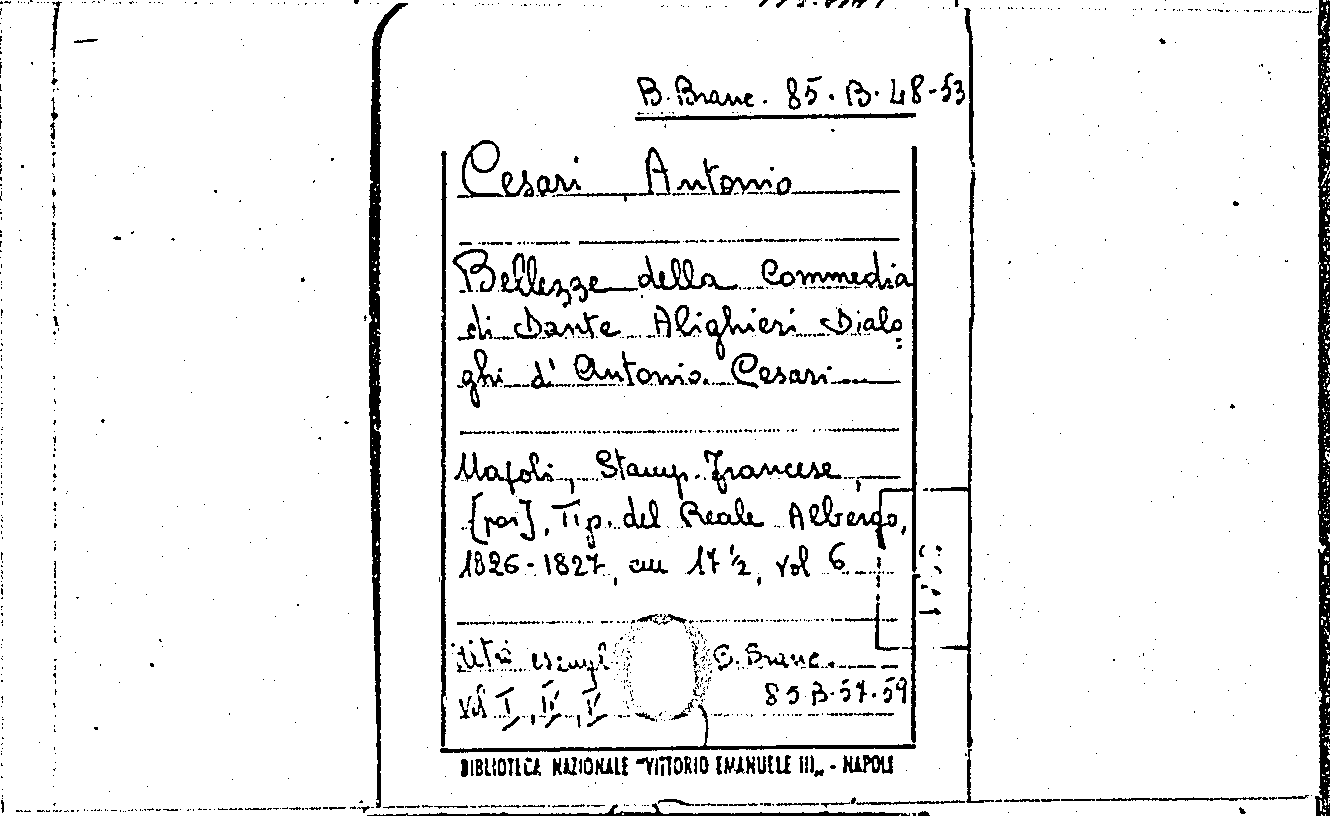 B. Branc. 85. B. 48-53
Cesari Antonio
Bellezze della Commedia
di Dante Alighieri Dialo=
ghi d' Antonio Cesari
Napoli, Stamp. Francese,
[poi], Tip. del Reale Albergo,
1826-1827, cm 17 ½, vol 6
Altri esempl B. Branc.
vol I, IV, V 85 B. 57-59
BIBLIOTECA NAZIONALE "VITTORIO EMANUELE III„ - NAPOLI